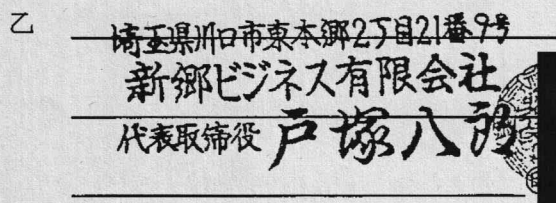 乙
埼玉県川口市東本郷2丁目21番9号
新郷ビジネス有限会社
代表取締役 戸塚八郎